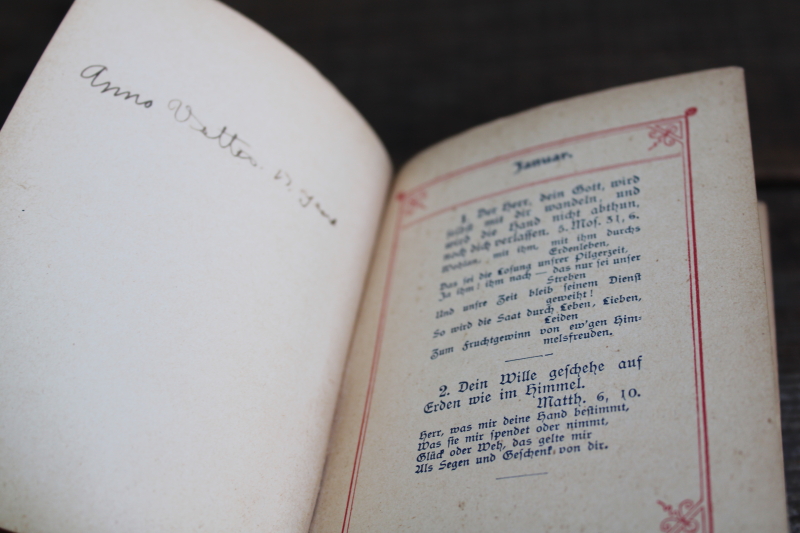 Anno Vetter
Januar.
1. Der Herr, dein Gott, wird
selbst mit dir wandeln, und
wird die Hand nicht abthun,
noch dich verlassen. 5. Mos. 31, 6.
Wohlan, mit ihm, mit ihm durchs
Erdenleben.
Das sei die Losung unsrer Pilgerzeit.
Ja ihm! ihm nach — das nur sei unser
Streben
Und unsre Zeit bleib seinem Dienst
geweiht!
So wird die Saat durch Leben, Lieben,
Leiden
Zum Fruchtgewinn von ew'gen Him-
melsfreuden.
2. Dein Wille geschehe auf
Erden wie im Himmel.
Matth. 6, 10.
Herr, was mir deine Hand bestimmt,
Was sie mir spendet oder nimmt,
Glück oder Weh, das gelte mir
Als Segen und Geschenk von dir.